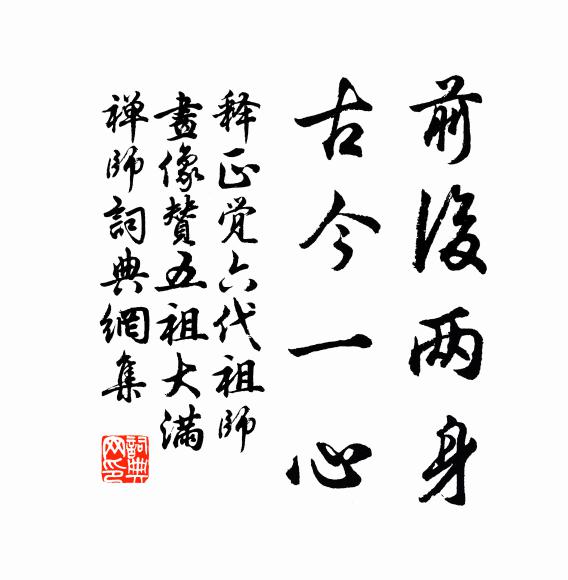 前後两身
古今一心
释正觉六代祖師
畫像贊五祖大满
禅師詞典網集
詞典
网印